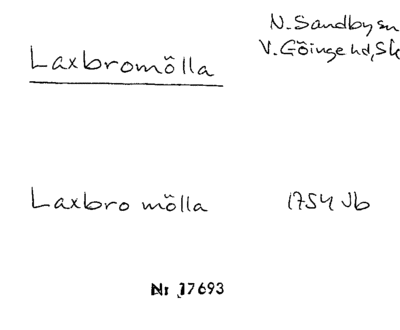 N. Sandby sn
V. Göinge hd, Sk
Laxbromölla
Laxbro mölla 1754 Jb
Nr 17693